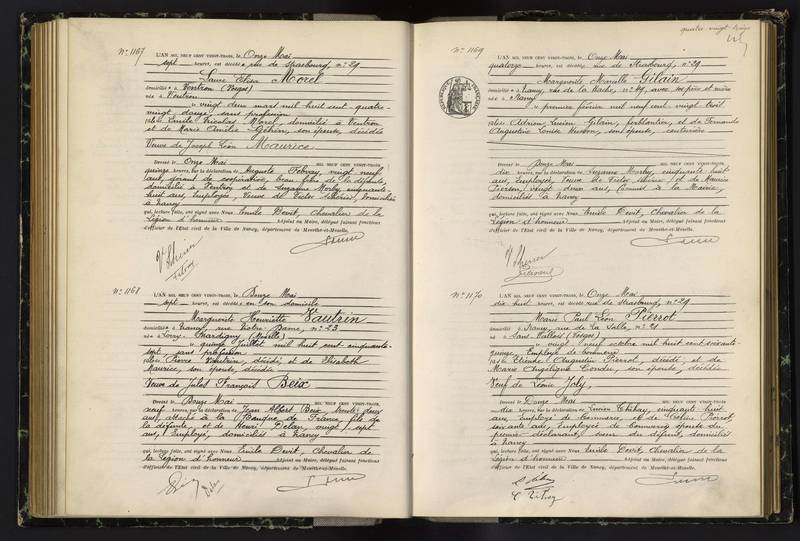 quatre-vingt-treize
N° 1167
L'AN MIL NEUF CENT VINGT-TROIS, le Onze Mai
sept heures, est décédée rue de Strasbourg, n° 29
Laure Elisa Morel
domiciliée à Ventron (Vosges)
née à Ventron
le vingt deux mars mil huit cent quatre-
vingt douze, sans profession
fille de Emile Nicolas Morel, domicilié à Ventron
et de Marie Amélie Géhin, son épouse, décédée
Veuve de Joseph Léon Maurice
Dressé le Onze Mai MIL NEUF CENT VINGT-TROIS,
quinze heures, sur la déclaration de Auguste Febvay, vingt neuf
ans, gérant de coopérative, beau-frère de la défunte,
domicilié à Ventron et de Suzanne Morby, cinquante-
huit ans, Employée, Veuve de Victor, domiciliée
à Nancy
qui, lecture faite, ont signé avec Nous Emile Devit, Chevalier de la
Légion d'honneur Adjoint au Maire, délégué faisant fonctions
d'officier de l'Etat civil de la Ville de Nancy, département de Meurthe-et-Moselle.
N° 1168
L'AN MIL NEUF CENT VINGT-TROIS, le Douze Mai
sept heures, est décédée en son domicile
Marguerite Henriette Vautrin
domiciliée à Nancy, rue Notre-Dame, n° 23
née à Lorry-Mardigny (Moselle)
le quinze juillet mil huit cent cinquante-
sept, sans profession
fille de Pierre Vautrin, décédé et de Elisabeth
Maurice, son épouse, décédée
Veuve de Jules François Beix
Dressé le Douze Mai MIL NEUF CENT VINGT-TROIS,
neuf heures, sur la déclaration de Jean Albert Beix, trente deux
ans, attaché à la Banque de France, fils de
la défunte, et de Henri Delan, vingt sept
ans, Employé, domiciliés à Nancy
qui, lecture faite, ont signé avec Nous Emile Devit, Chevalier de
la Légion d'honneur Adjoint au Maire, délégué faisant fonctions
d'officier de l'Etat civil de la Ville de Nancy, département de Meurthe-et-Moselle.
N° 1169
L'AN MIL NEUF CENT VINGT-TROIS, le Onze Mai
quatorze heures, est décédée rue de Strasbourg, n° 29
Marguerite Marcelle Gilain
domiciliée à Nancy, rue de la Hache, n° 49, avec ses père et mère
née à Nancy
le premier février mil neuf cent vingt trois
fille de Adrien Lucien Gilain, ferblantier, et de Fernande
Augustine Louise Husson, son épouse, couturière
Dressé le Douze Mai MIL NEUF CENT VINGT-TROIS,
dix heures, sur la déclaration de Suzanne Morby, cinquante huit
ans, Employée, Veuve de Victor et de Maurice
Pierson, vingt deux ans, Commis à la Mairie,
domiciliés à Nancy
qui, lecture faite, ont signé avec Nous Emile Devit, Chevalier de la
Légion d'honneur Adjoint au Maire, délégué faisant fonctions
d'officier de l'Etat civil de la Ville de Nancy, département de Meurthe-et-Moselle.
N° 1170
L'AN MIL NEUF CENT VINGT-TROIS, le Onze Mai
dix huit heures, est décédé rue de Strasbourg, n° 29
Marie Paul Léon Pierrot
domicilié à Nancy, rue de la Salle, n° 21
né à (Vosges)
le vingt neuf octobre mil huit cent soixante-
quinze, Employé de commerce
fils de Augustin Pierrot, décédé et de
Marie Angélique, son épouse, décédée
Veuf de Léonie Joly,
Dressé le Douze Mai MIL NEUF CENT VINGT-TROIS,
dix heures, sur la déclaration de Lucien, cinquante huit
ans, Employé de Commerce, et de Pierrot,
soixante ans, Employée de commerce, épouse du
premier déclarant, sœur du défunt, domiciliés
à Nancy
qui, lecture faite, ont signé avec Nous Emile Devit, Chevalier de la
Légion d'honneur Adjoint au Maire, délégué faisant fonctions
d'officier de l'Etat civil de la Ville de Nancy, département de Meurthe-et-Moselle.